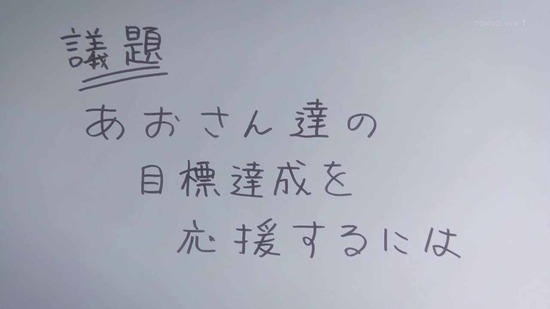 議題
あおさん達の
目標達成を
応援するには